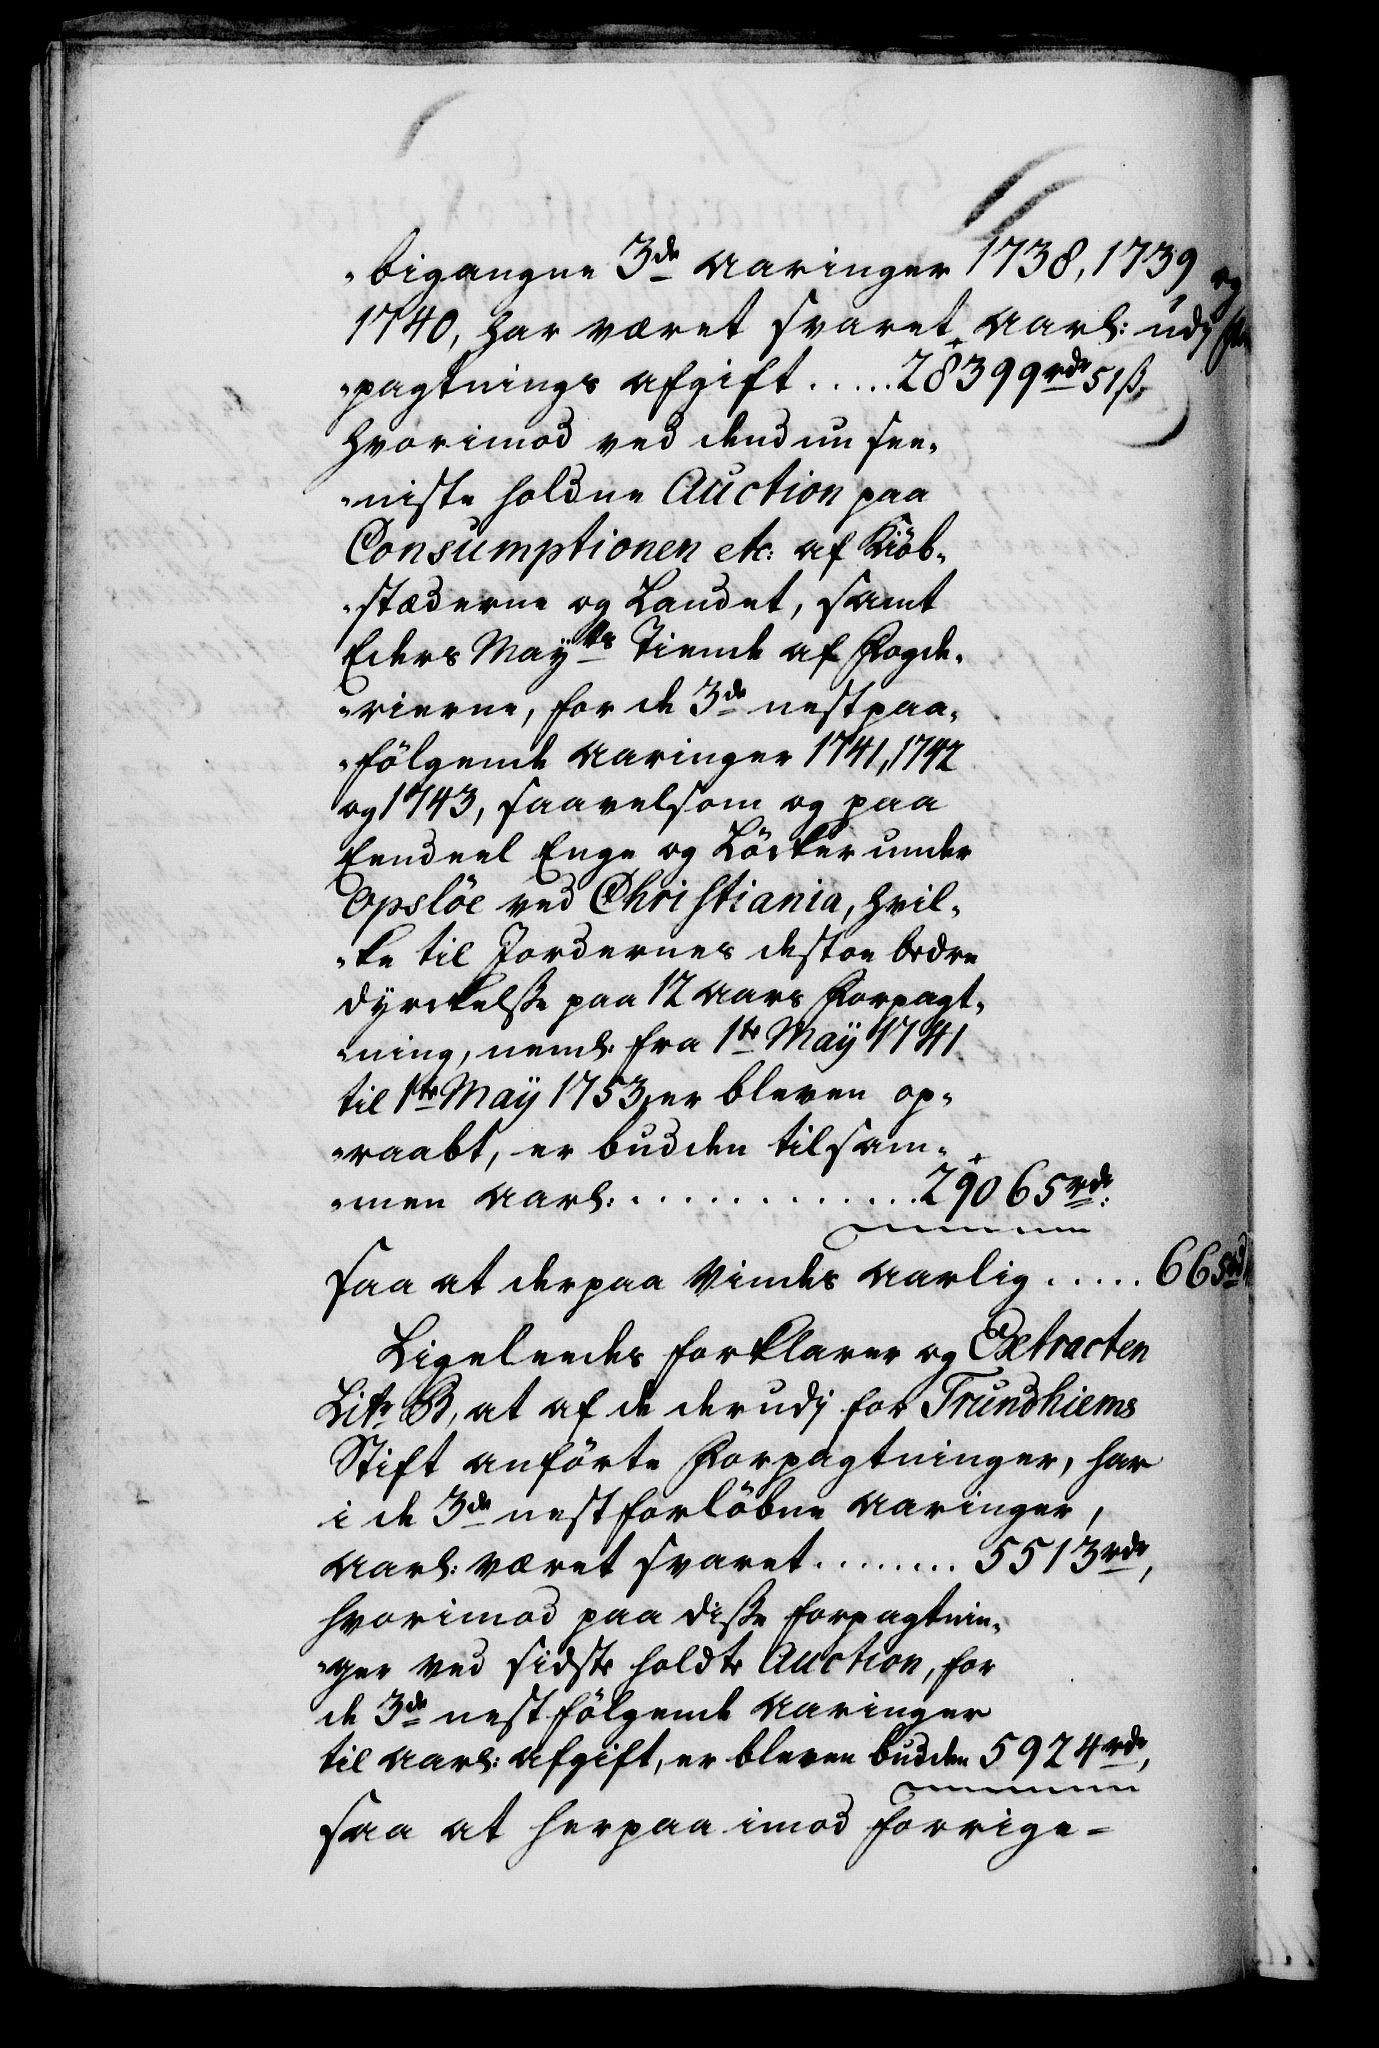 -bigangne 3de Aaringer 1738, 1739 og
1740, har været svaret Aarl: udj
-pagtnings afgift ..... 28399 rdr 51 ß,
hvorimod ved dend nu see-
-niste holdne Auction paa
Consumptionen etc: af Kiöb-
-stæderne og Landet, samt
Eders Maÿts Tiende af Fogde-
-rierne, for de 3de nestpaa-
-fölgende Aaringer 1741, 1742
og 1743, saavelsom og paa
Eendeel Enge og Löcker under
Opslöe ved Christiania, hvil-
-ke til Jordernes destoe bedre
dyrckelße paa 12 Aars Forpagt-
-ning, neml: fra 1te Maÿ 1741
til 1te Maÿ 1753, er bleven op-
-raabt, er budden tilsam-
-men Aarl: ............. 29065 rdr:
saa at derpaa Vindes Aarlig ..... 665 rd
Ligeleedes forklarer og Extracten
Litr B, at af de derudj for Trundhiems
Stift anförte Forpagtninger, har
i de 3de nestforlöbne Aaringer,
Aarl: været svaret ........ 5513 rdr,
hvorimod paa diße forpagtnin-
-ger ved sidste holdte Auction, for
de 3de nestfölgende Aaringer
til Aarl: Afgift, er bleven budden 5924 rdr,
saa at herpaa imod forrige=